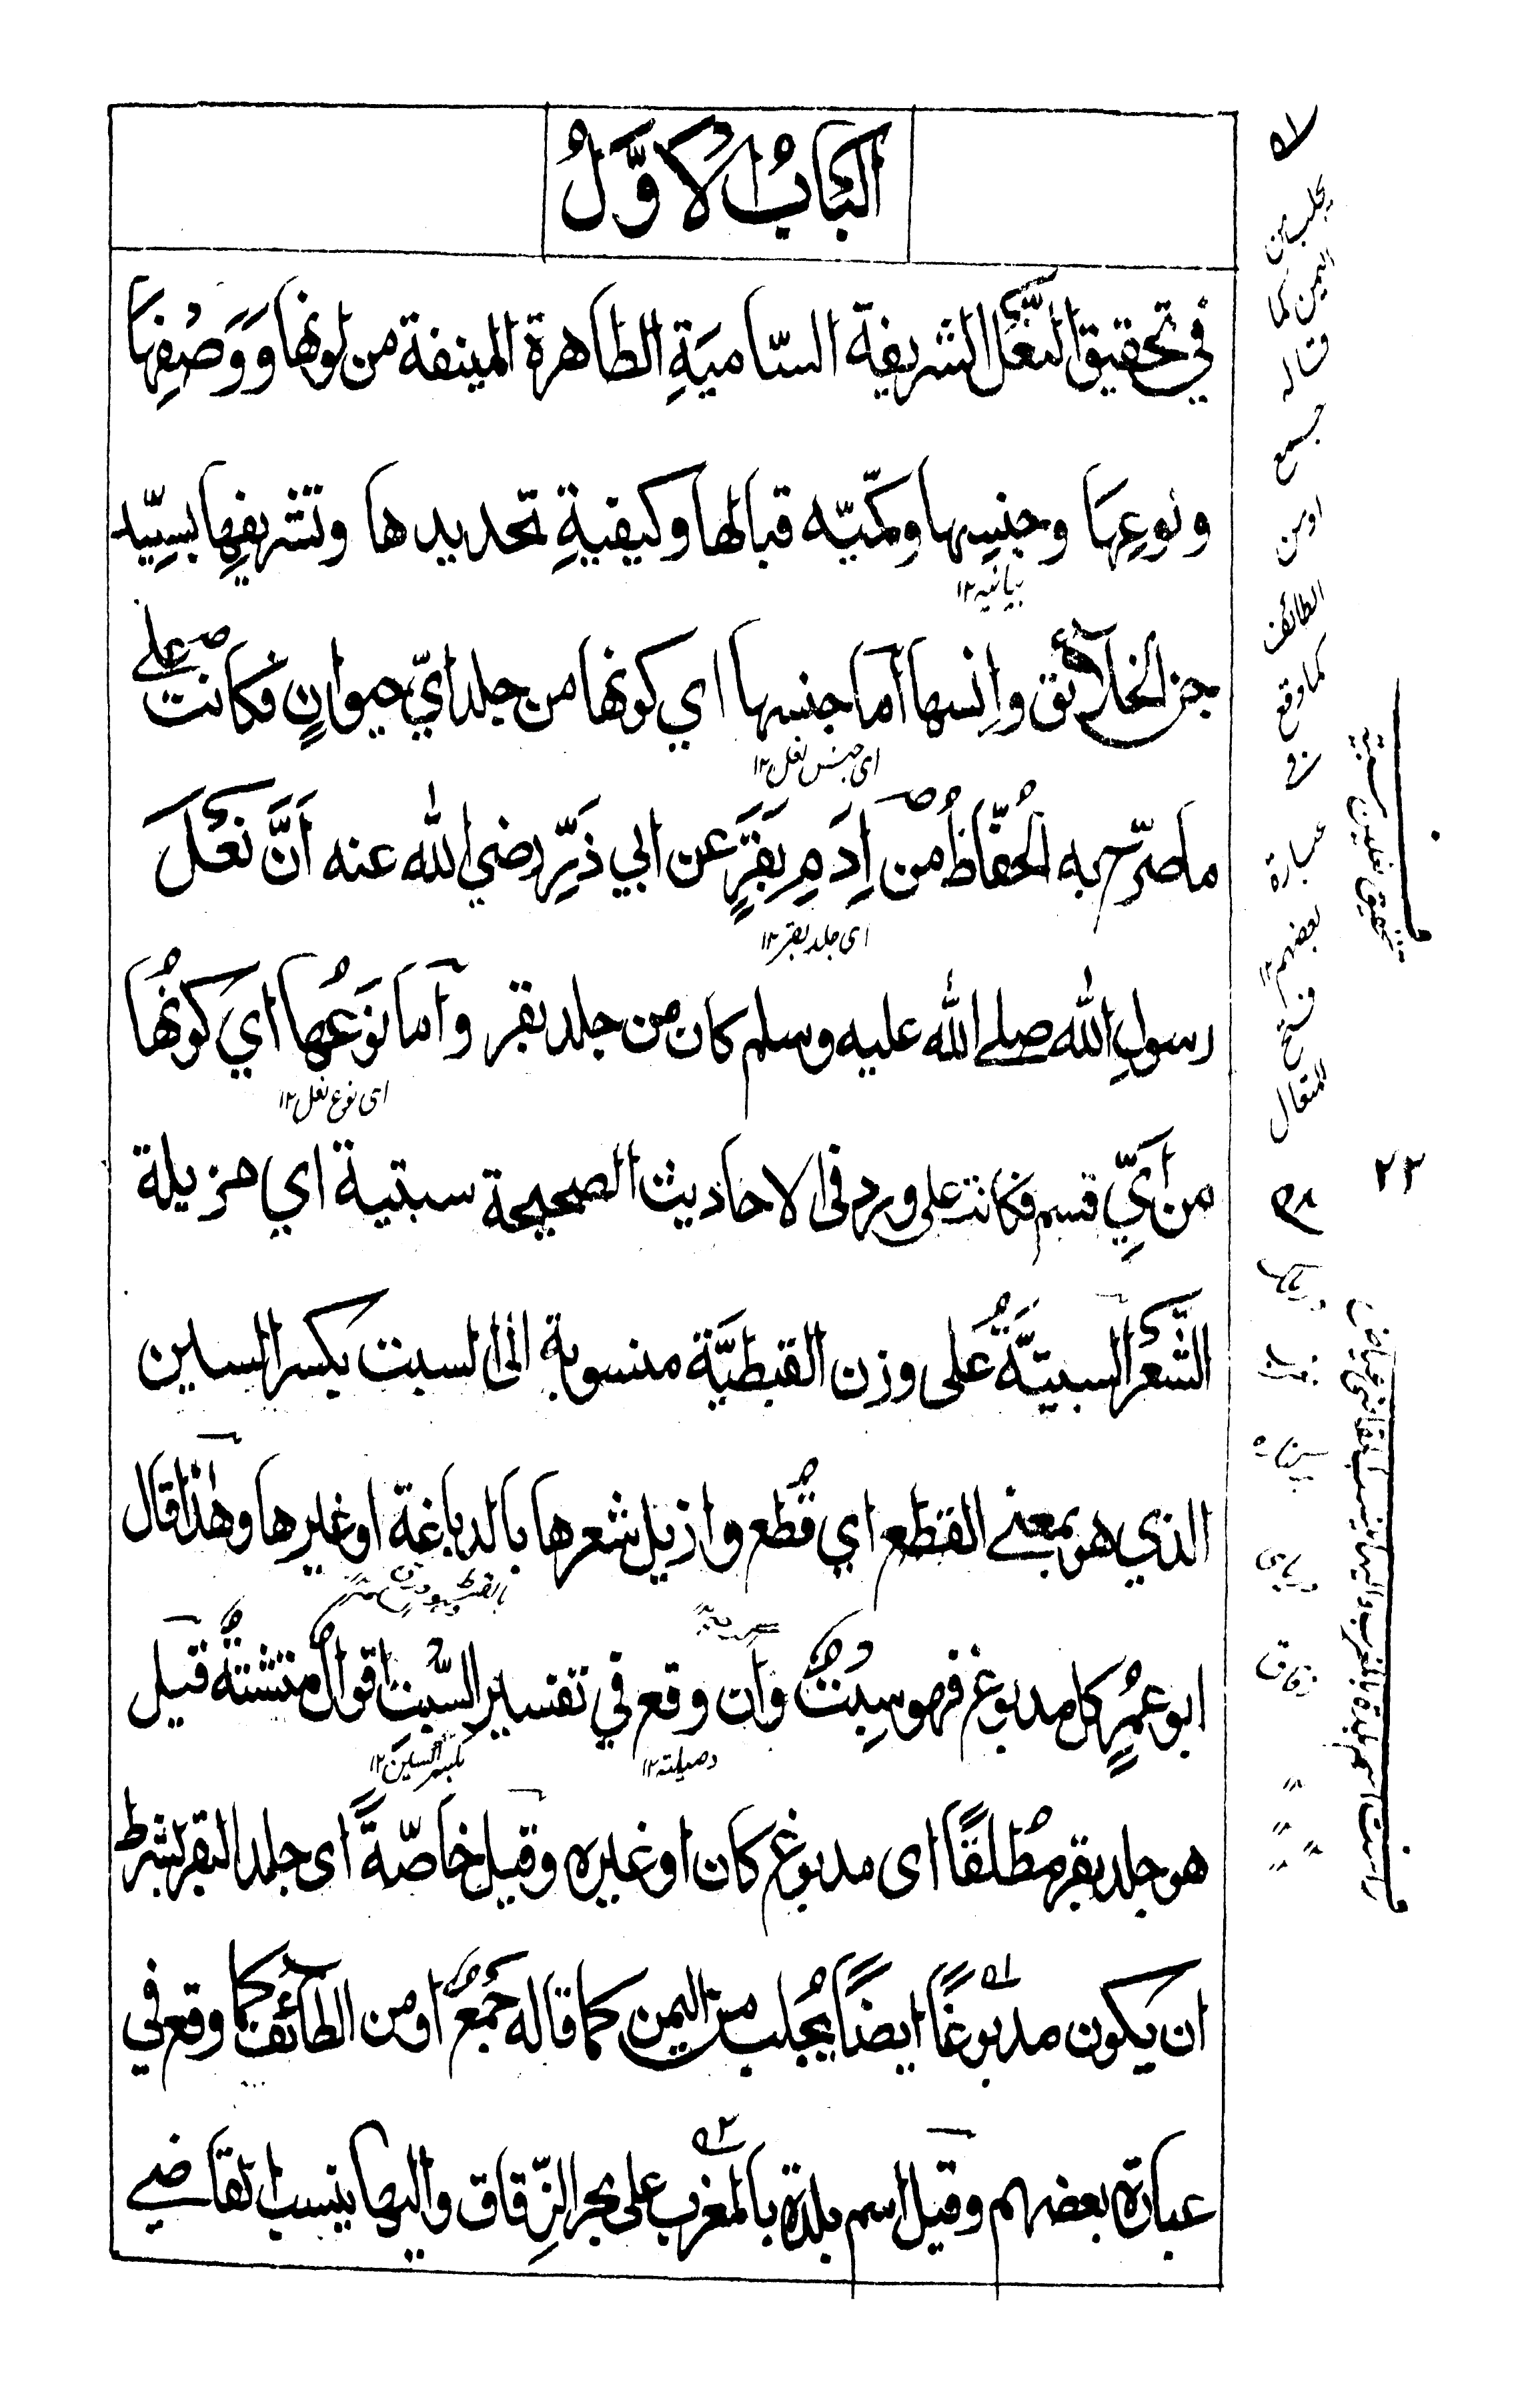 الباب الاول
في تحقيق النعل الشريفة السامية الطاهرة المنيفة من لونها ووصفها
ونوعها وجنسها وكميّه قبالها وكيفيةِ تحديدها وتشريفِها بسيّد
بيانيه١٢
جن الخلآئق واِنسها اَما جنسها اي كونها من جلد ايّ حيوانٍ فكانت على
اى جنس نعل١٢
ما صرّح به الحُفّاظُ من اِدَمِ بَقَرٍ عن ابي ذَرٍّ رضي الله عنه اَنَّ نَعْلَ
اى جلد بقر١٢
رسولِ الله صلے الله عليه وسلم كان من جلد بقر وآما نوَعُها اي كونُها
اى نوع نعل١٢
من اَيِّ قسم فكانت على ورد فى الاحاديث الصحيحة سبتية اي مزيلة
الشَّعر السبتيَّةُ على وزن القبطيَّة منسوبة الى السبت بكسر السين
الذي هو بمعنے القطع اي قُطع وازيل شعرها بالدباغة او غيرها وهٰذا قال
ابو عمرٍ كل مدبوغ فهو سِبْتٌ وآن وقع في تفسير السِّبت اقوالٌ متشتتةٌ قيل
وصيلته١٢
بكسر السين١٢
هو جلد بقر مُطلقًا اى مدبوغ كان او غيره وقيل خاصّةً اى جلد البقر بشرط
ان يكون مدبوغًا ايضًا يُجلب من اليمن كما قاله جَمعٌ او من الطآئف كما وقع في
عبارة بعضهم وقيل اسم بلدة بالمغرب على بحر الزِّقاق واليها ينسب القاضے
يجلب من
اليمن كما
قاله
جمع
او من
الطائف
كما وقع
فى
عبارة
بعضهم
فتح
المتعال
تحقيق نعلين سبتيه
٢٣
زقاق